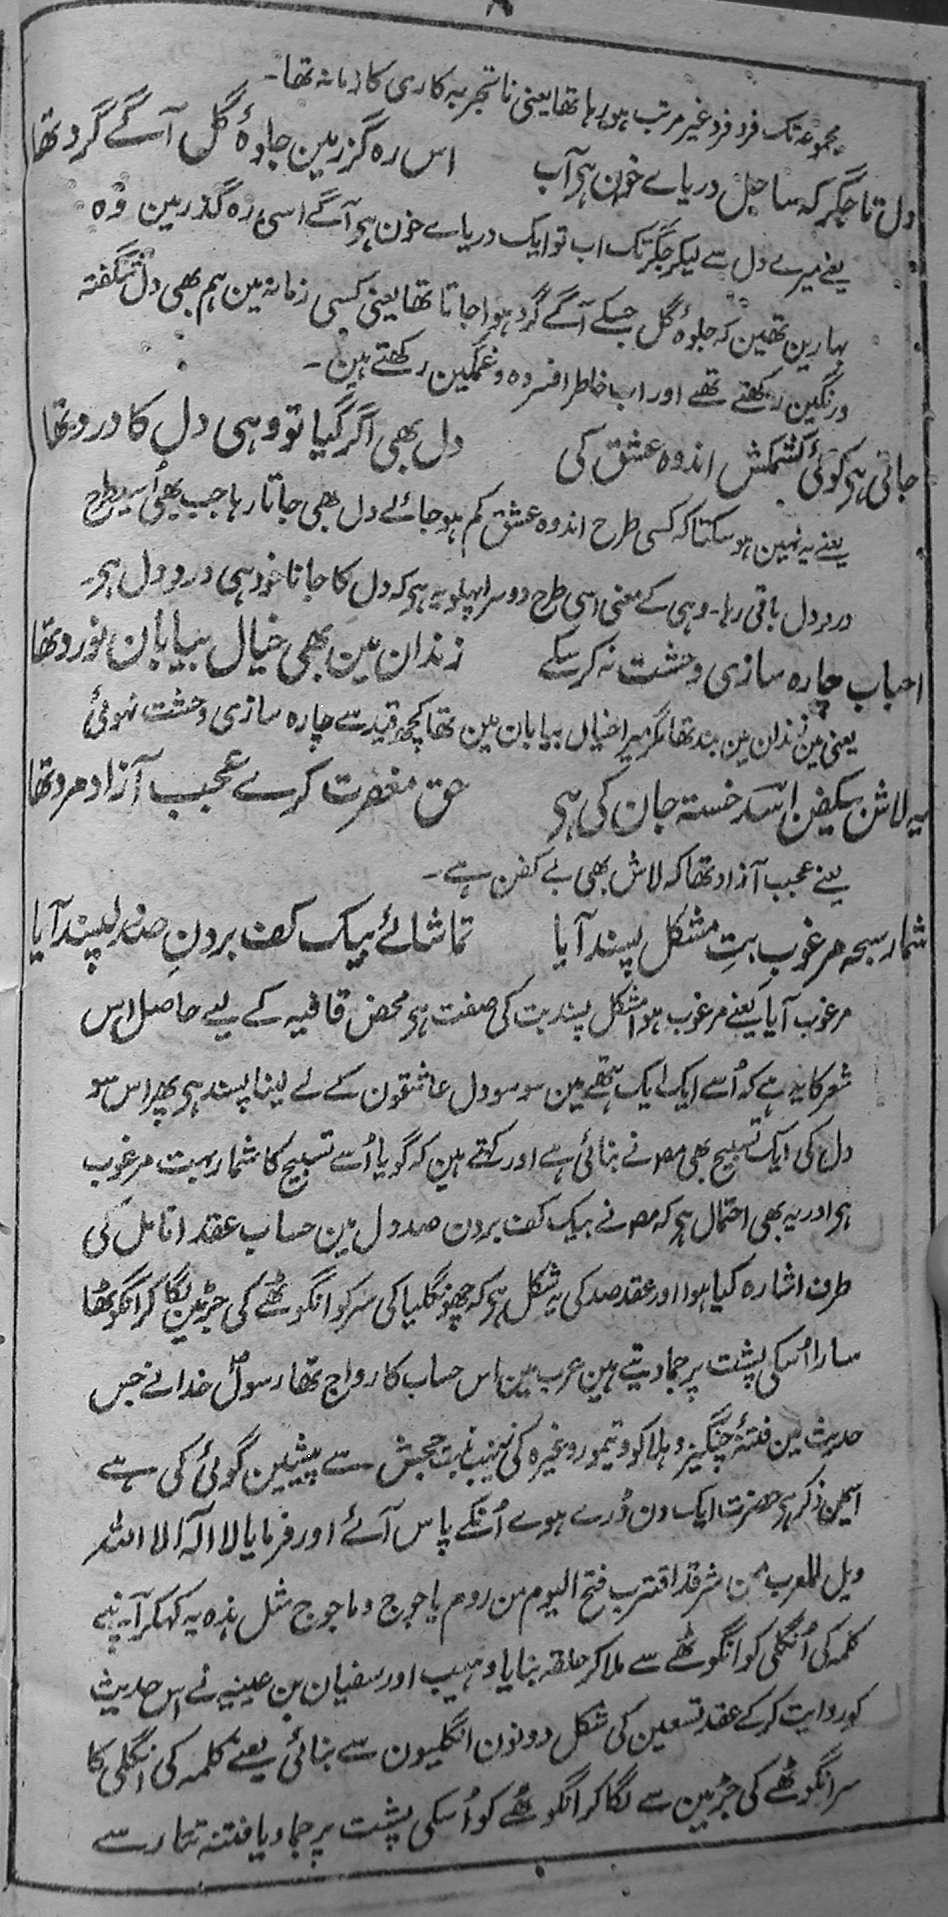 ۸
مجموعہ تک فرد فرد غیر مرتب ہو رہا تھا یعنی ناتجربہ کاری کا زمانہ تھا۔
دل تا جگر کہ ساحل دریاے خون ہی آب اس رہ گزر مین جلوۂ گل آگے گرد تھا
یعنے میرے دل سے لیکر جگر تک اب تو ایک دریاے خون ہی آگے اسی رہ گذر مین وہ
بہارین تھین کہ جلوۂ گل جسکے آگے گرد ہوا جاتا تھا یعنی کسی زمانہ مین ہم بھی دل شگفتہ
ورنگین رکھتے تھے اور اب خاطر افسردہ و غمگین رکھتے ہین۔
جاتی ہی کوئی کشمکش اندوہ عشق کی دل بھی اگر گیا تو وہی دل کا درد تھا
یعنے یہ نہین ہو سکتا کہ کسی طرح اندوہ عشق کم ہو جائے دل بھی جاتا رہا جب بھی اُسیطرح
درد دل باقی رہا۔ وہی کے معنی اسی طرح دوسرا پہلو یہ ہی کہ دل کا جانا خود ہی درد دل ہی۔
احباب چارہ سازی وحشت نہ کر سکے زندان مین بھی خیال بیابان نورد تھا
یعنی مین زندان مین بند تھا مگر میرا خیال بیابان مین تھا کچھ قید سے چارہ سازی وحشت نہوئی
یہ لاش بیکفن اسد خستہ جان کی ہی حق مغفرت کرے عجب آزاد مرد تھا
یعنے عجب آزاد تھا کہ لاش بھی بے کفن ہے۔
شمار سبحہ مرغوب بتِ مشکل پسند آیا تماشائے بیک کف بردنِ صد دل پسند آیا
مرغوب آیا یعنے مرغوب ہوا مشکل پسند بت کی صفت ہی محض قافیہ کے لیے حاصل اس
شعر کا یہ ہے کہ اُسے ایک ایک ہتھے مین سو سو دل عاشقون کے لے لینا پسند ہی پھر اس سو
دل کی ایک تسبیح بھی مصنے بنائی ہے اور کہتے ہین کہ گویا اُسے تسبیح کا شمار بہت مرغوب
ہی اور یہ بھی احتمال ہی کہ مصنے بیک کف بردن صد دل مین حساب عقد انامل کی
طرف اشارہ کیا ہو اور عقد صد کی یہ شکل ہی کہ چھونگلیا کی سر کو انگوٹھے کی جڑ مین لگا کر انگوٹھا
سارا اُسکی پشت پر جما دیتے ہین عرب مین اس حساب کا رواج تھا رسولؐ خدا نے جس
حدیث مین فتنۂ چنگیز و ہلاکو و تیمور وغیرہ کی زینب بنت جحش سے پیشین گوئی کی ہے
اسمین ذکر ہی حضرت ایک دن ڈرے ہوے اُنکے پاس آئے اور فرمایا لا الہ الا اللہ
ویل للعرب من شر قد اقترب فتح الیوم من روم یاجوج و ماجوج مثل ہذہ یہ کہکر آپ نے
کلمہ کی اُنگلی کو انگوٹھے سے ملا کر حلقہ بنایا وہیب اور سفیان بن عینیہ نے اس حدیث
کو روایت کر کے عقد تسعین کی شکل دونون انگلیون سے بنائی یعنے کلمہ کی انگلی کا
سر انگوٹھے کی جڑ مین سے لگا کر انگوٹھے کو اُسکی پشت پر جما دیا فتنہ تتار سے